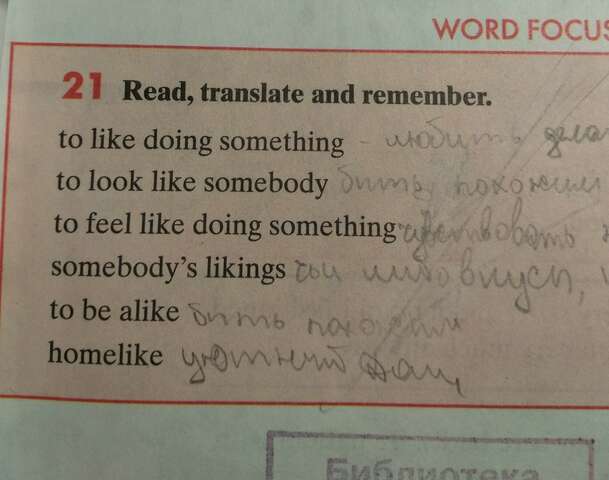 WORD FOCUS
21 Read, translate and remember.
to like doing something - любить дела
to look like somebody быть похожим
to feel like doing something чувствовать
somebody's likings чьи либо вкусы,
to be alike быть похожим
homelike уютный дом,
Библиотека